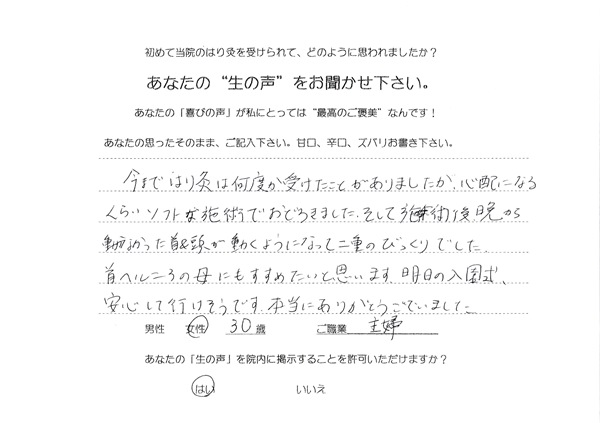 初めて当院のはり灸を受けられて、どのように思われましたか？
あなたの“生の声”をお聞かせ下さい。
あなたの「喜びの声」が私にとっては“最高のご褒美”なんです！
あなたの思ったそのまま、ご記入下さい。甘口、辛口、ズバリお書き下さい。
今まではり灸は何度か受けたことがありましたが、心配になる
くらいソフトな施術でおどろきました。そして施術後、晩から
動かなかった首&頭が動くようになって二重のびっくりでした。
首ヘルニアの母にもすすめたいと思います。明日の入園式、
安心して行けそうです。本当にありがとうございました。
男性 女性 30歳 ご職業 主婦
あなたの「生の声」を院内に掲示することを許可いただけますか？
はい いいえ